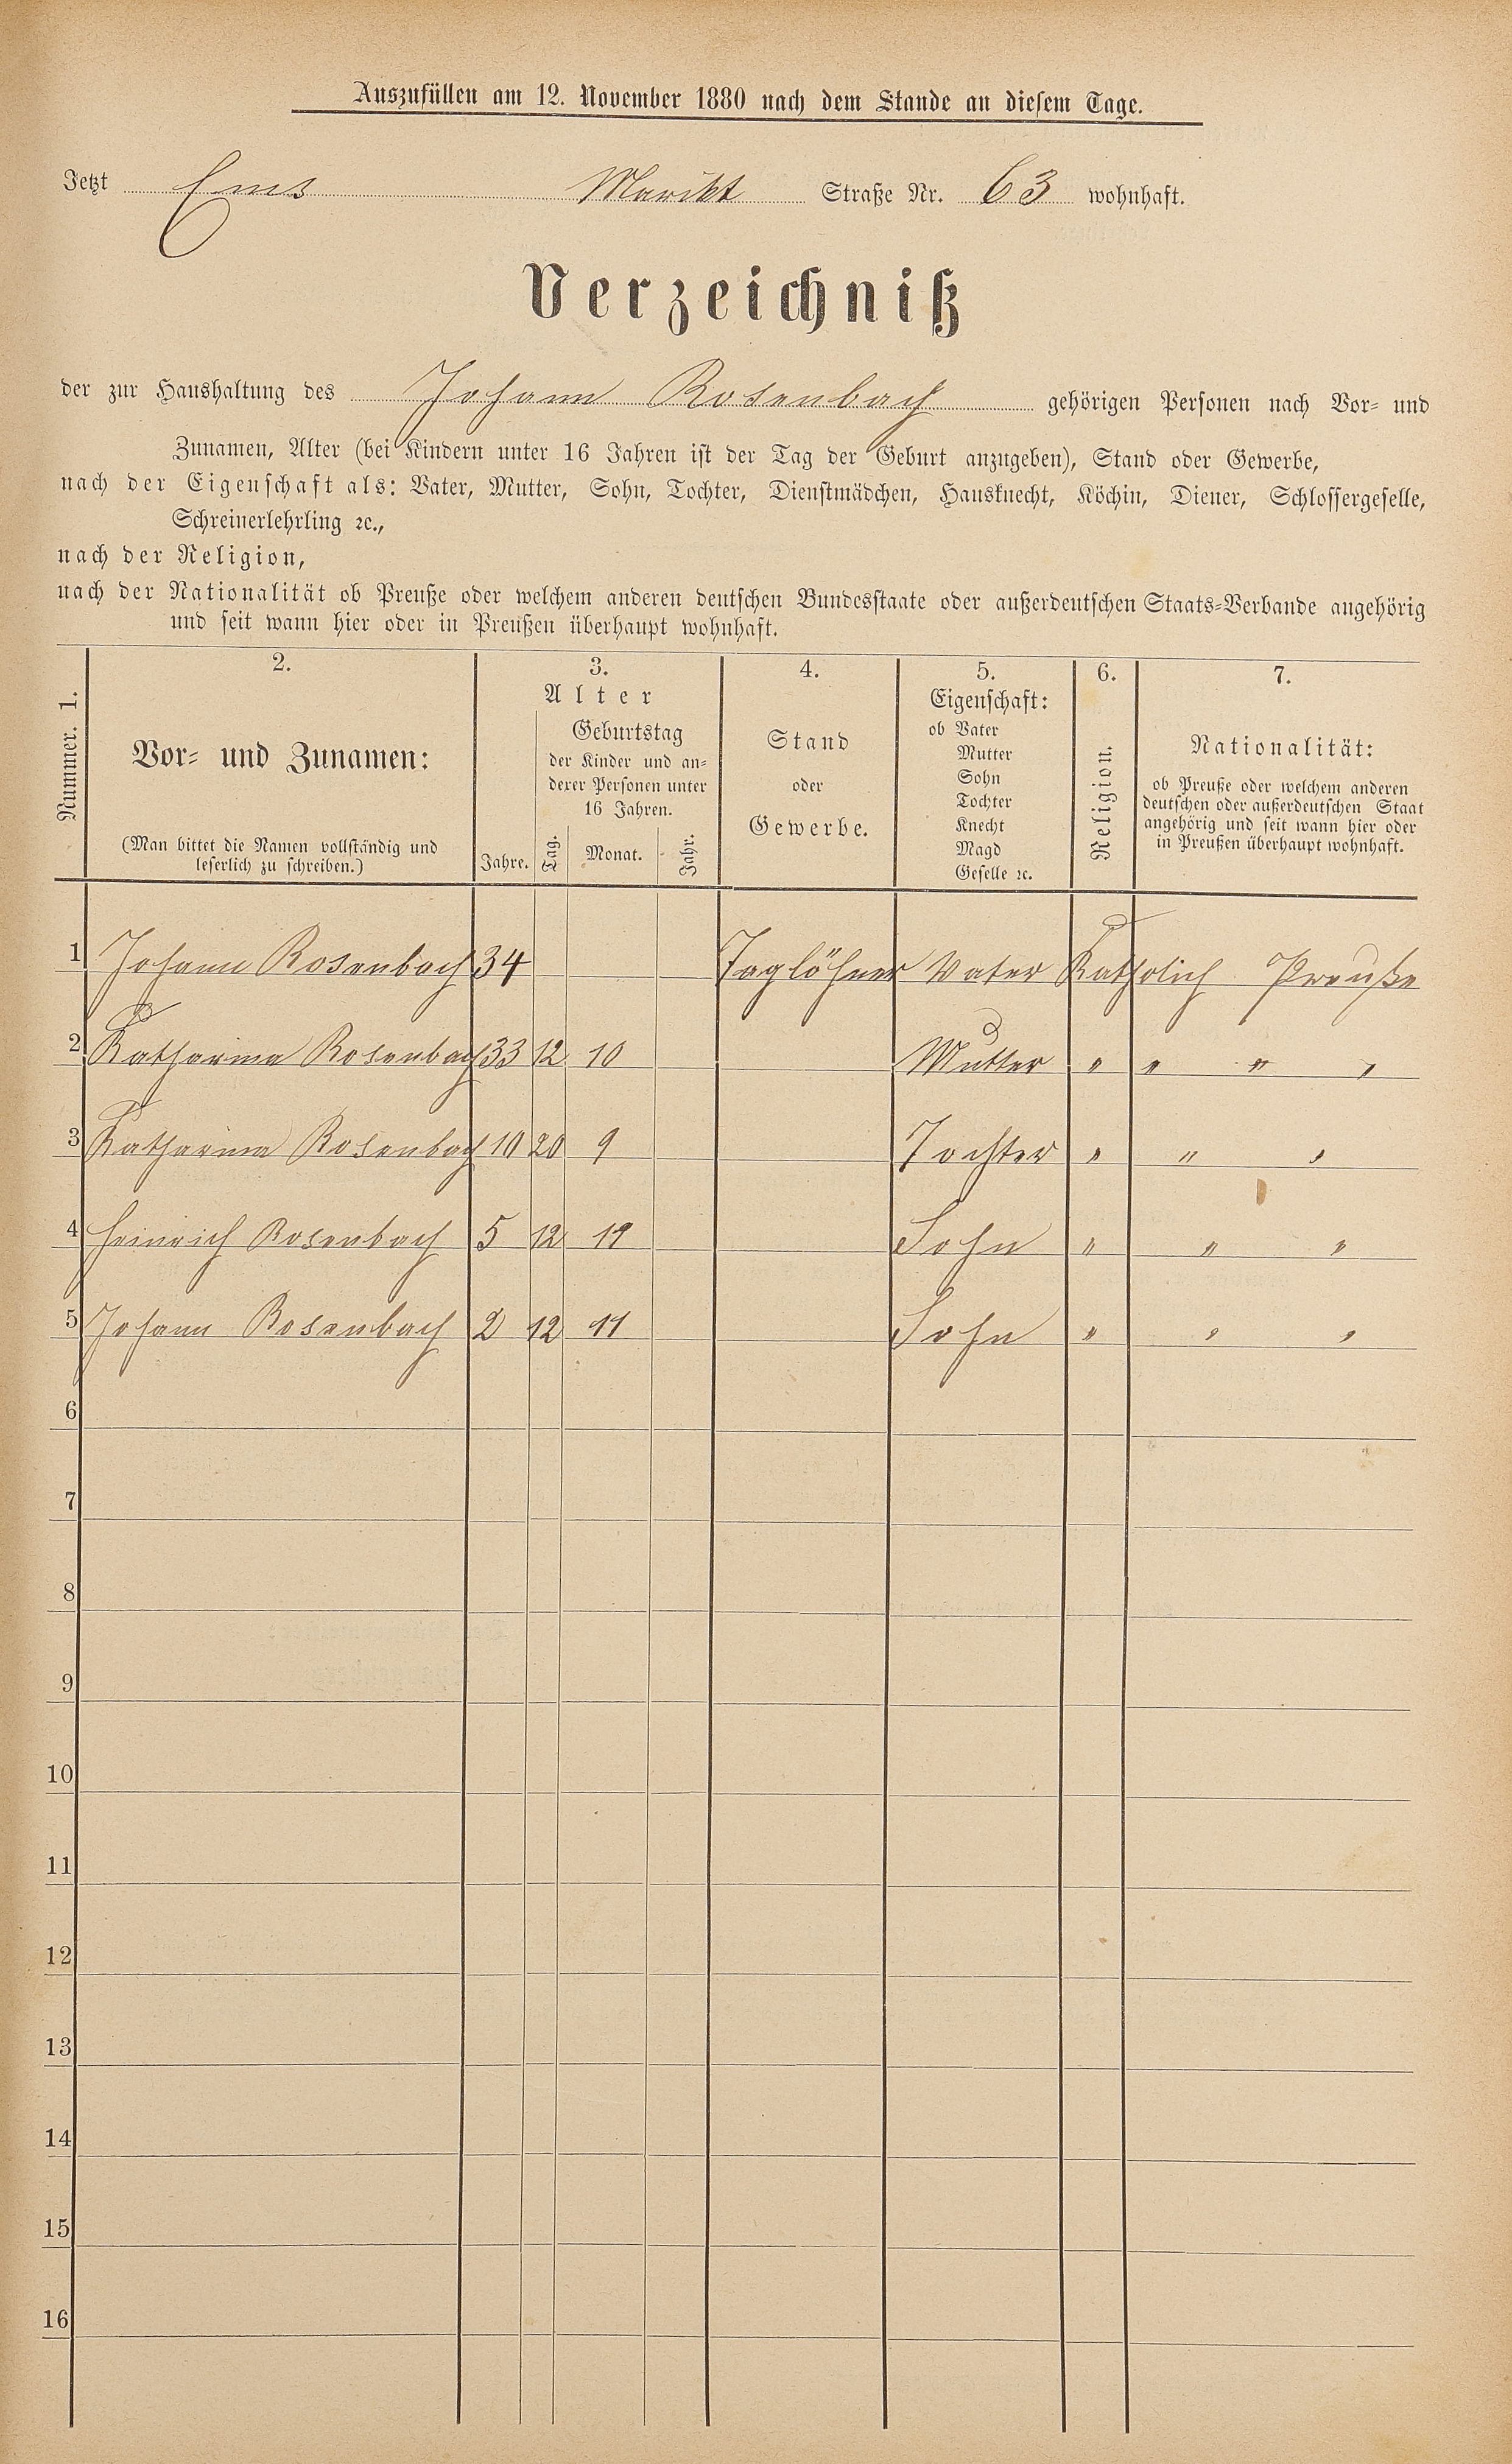 Auszufüllen am 12. November 1880 nach dem Stande an diesem Tage.
Jetzt Ems Markt Straße Nr. 63 wohnhaft.
Verzeichniß
der zur Haushaltung des Johann Rosenbach gehörigen Personen nach Vor- und
Zunamen, Alter (bei Kindern unter 16 Jahren ist der Tag der Geburt anzugeben), Stand oder Gewerbe,
nach der Eigenschaft als: Vater, Mutter, Sohn, Tochter, Dienstmädchen, Hausknecht, Köchin, Diener, Schlossergeselle,
Schreinerlehrling ꝛc.,
nach der Religion,
nach der Nationalität ob Preuße oder welchem anderen deutschen Bundesstaate oder außerdeutschen Staats-Verbande angehörig
und seit wann hier oder in Preußen überhaupt wohnhaft.
Nummer. 1.
2.
Vor- und Zunamen:
(Man bittet die Namen vollständig und
leserlich zu schreiben.)
3.
Alter
Jahre.
Geburtstag
der Kinder und an-
derer Personen unter
16 Jahren.
Tag. Monat. Jahr.
4.
Stand
oder
Gewerbe.
5.
Eigenschaft:
ob Vater
Mutter
Sohn
Tochter
Knecht
Magd
Geselle ꝛc.
6.
Religion.
7.
Nationalität:
ob Preuße oder welchem anderen
deutschen oder außerdeutschen Staat
angehörig und seit wann hier oder
in Preußen überhaupt wohnhaft.
1 Johann Rosenbach 34 Taglöhner Vater Katholich Preuße
2 Katharina Rosenbach 33 12 10 Mutter " " " "
3 Katharina Rosenbach 10 20 9 Tochter " " "
4 Heinrich Rosenbach 5 12 11 Sohn " " "
5 Johann Rosenbach 2 12 11 Sohn " " "
6
7
8
9
10
11
12
13
14
15
16